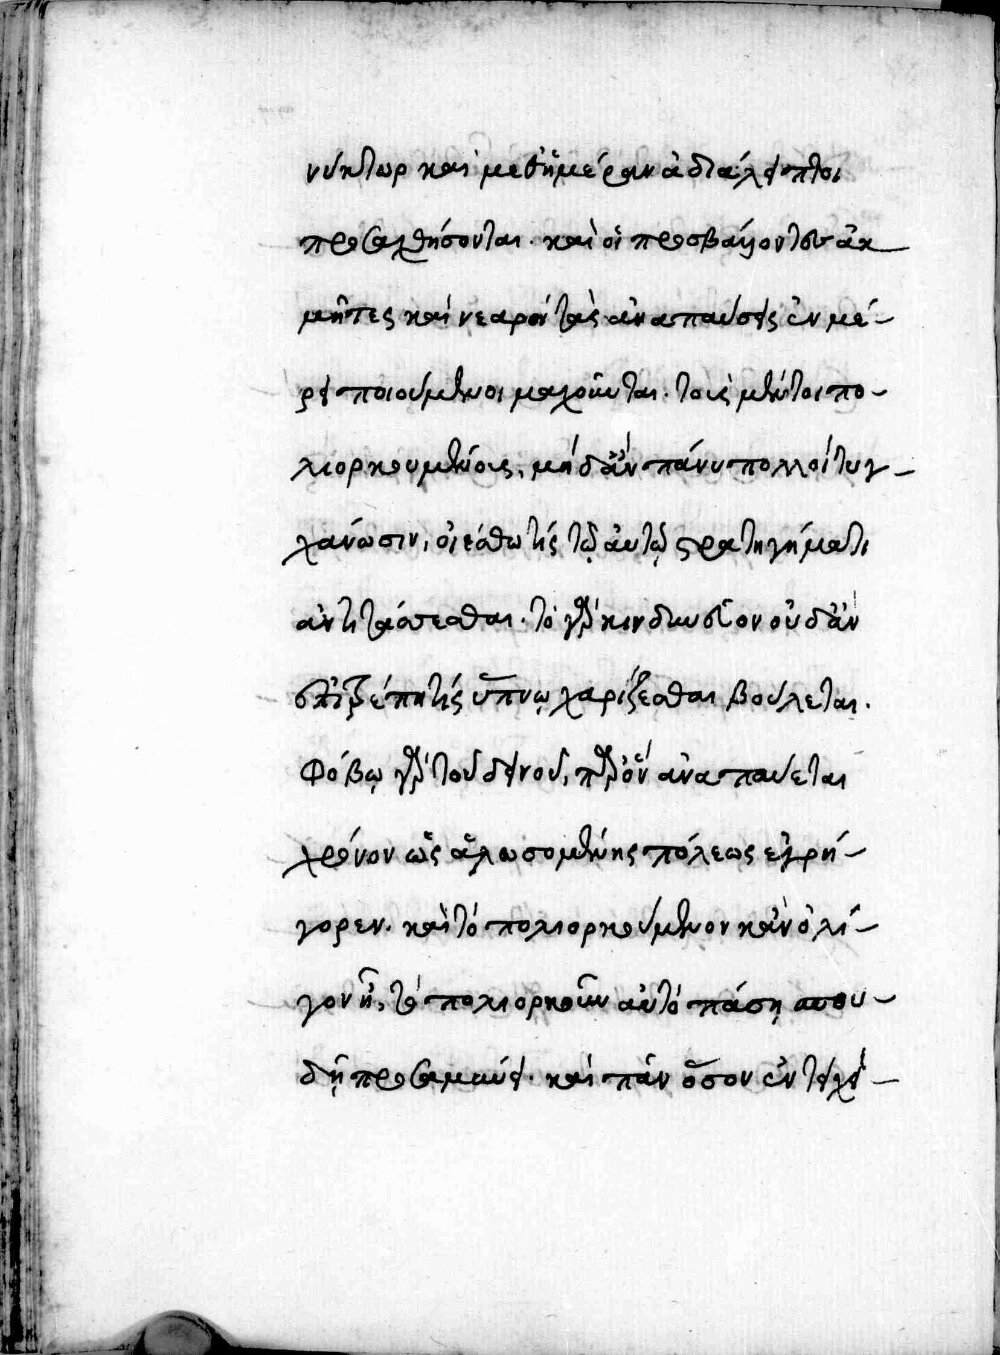 νύκτωρ καὶ μεθ' ἡμέραν ἀδιάλειπτοι
προσαχθήσονται. καὶ οἱ προσβάλλοντες ἀκ
μῆτες καὶ νεαροὶ τὰς ἀναπαύσεις ἐν μέ-
ρει ποιούμενοι μαχοῦνται. τοῖς μέντοι πο-
λιορκουμένοις, μὴδ' ἂν πάνυ πολλοὶ τυγ-
χάνωσιν, οἰέσθω τίς τῷ αὐτῷ στρατηγήματι
ἀντιτάσσεσθαι. τὸ γὰρ κινδυνεῦον οὐδ' ἂν
ἐπιτρέπῃ τίς ὕπνῳ χαρίζεσθαι βούλεται.
Φόβῳ γὰρ τοῦ δεινοῦ, παρ' ὃν ἀναπαύεται
χρόνον ὡς ἁλωσομένης πόλεως ἐγρή-
γορεν. καὶ τὸ πολιορκούμενον κἂν ὀλί-
γον ᾖ, τὸ πολιορκοῦν αὐτὸ πάσῃ σπου-
δῇ προσαμαύει. καὶ πᾶν ὅσον ἐν τείχει-